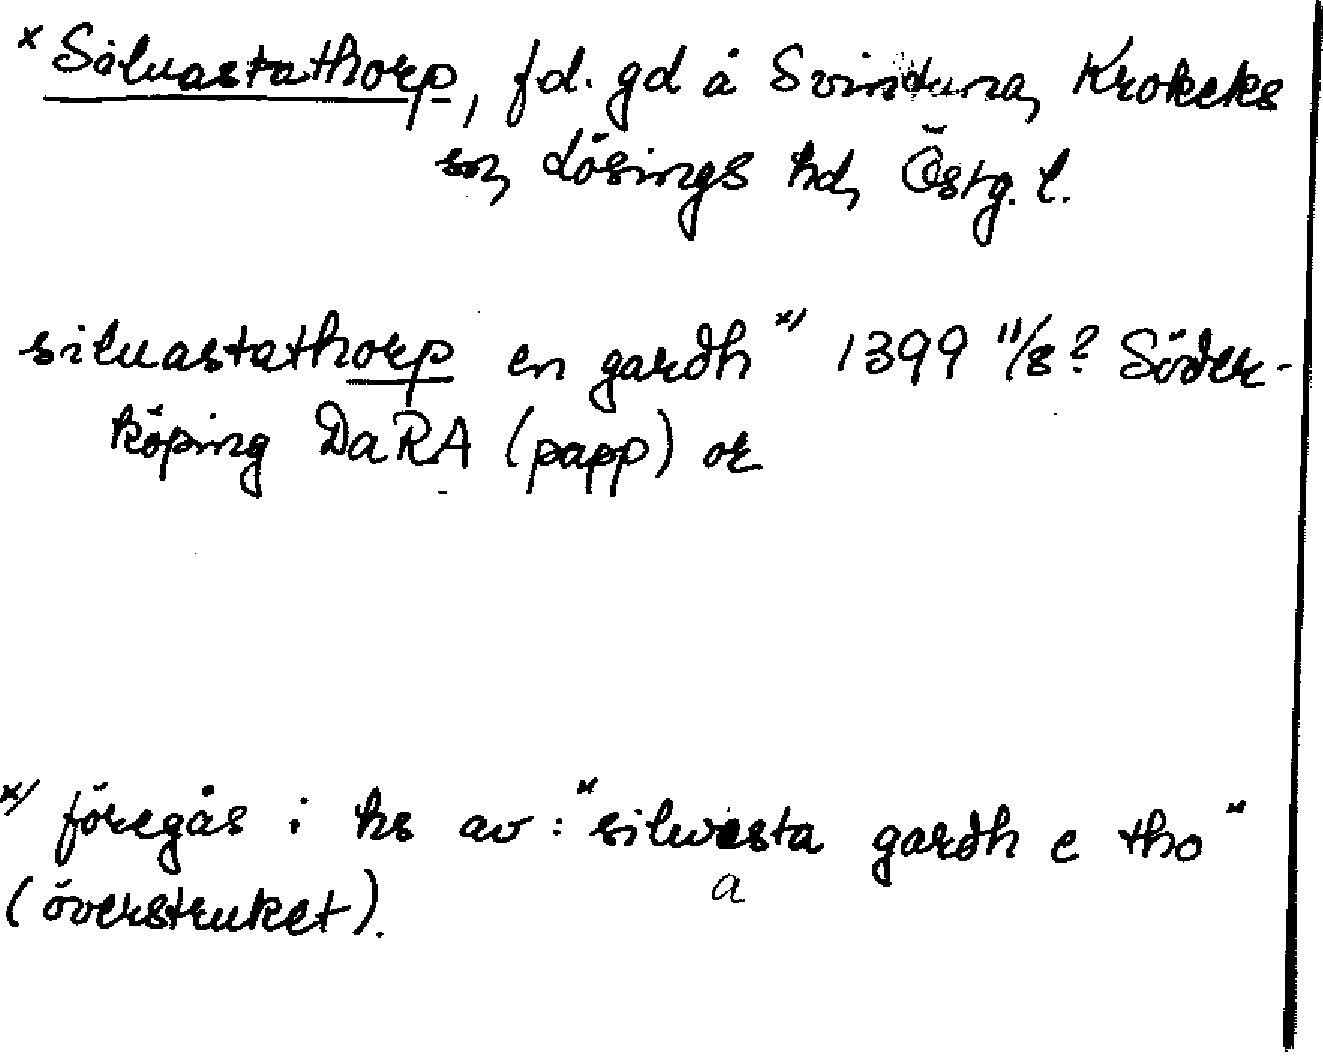 × Siluastathorp, fd. gd å Svintuna, Krokeks
sn, Lösings hd, Östg. l.
siluastathorp en gardh ×) 1399 11/8? Söder-
köping DaRA (papp) or
×) föregås i hs av: "silwasta gardh e tho"
a
(överstruket).